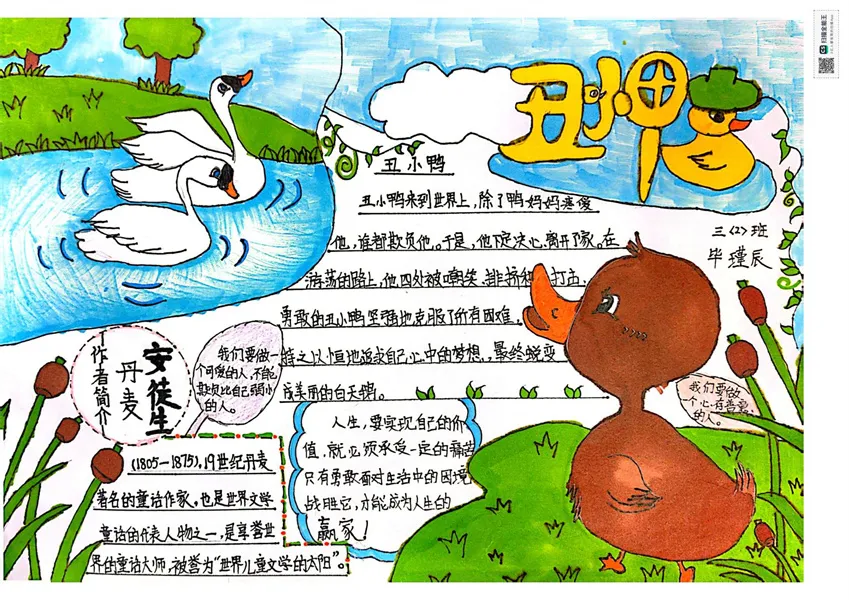 丑小鸭
三(2)班
毕瑾辰
丑小鸭
丑小鸭来到世界上,除了鸭妈妈疼爱
他,谁都欺负他。于是,他下定决心离开了家。在
游荡的路上,他四处被嘲笑、排挤和打击,
勇敢的丑小鸭坚强地克服了所有困难。
持之以恒地追求自己心中的梦想,最终蜕变
成美丽的白天鹅。
作者简介
丹麦
安徒生
(1805—1875),19世纪丹麦
著名的童话作家。也是世界文学
童话的代表人物之一,是享誉世
界的童话大师,被誉为“世界儿童文学的太阳”。
我们要做一
个可爱的人,不能
欺负比自己弱小
的人。
人生,要实现自己的价
值,就必须承受一定的痛苦
只有勇敢面对生活中的困境
战胜它,才能成为人生的
赢家!
我们要做
一个心有善意
的人。
扫描全能王